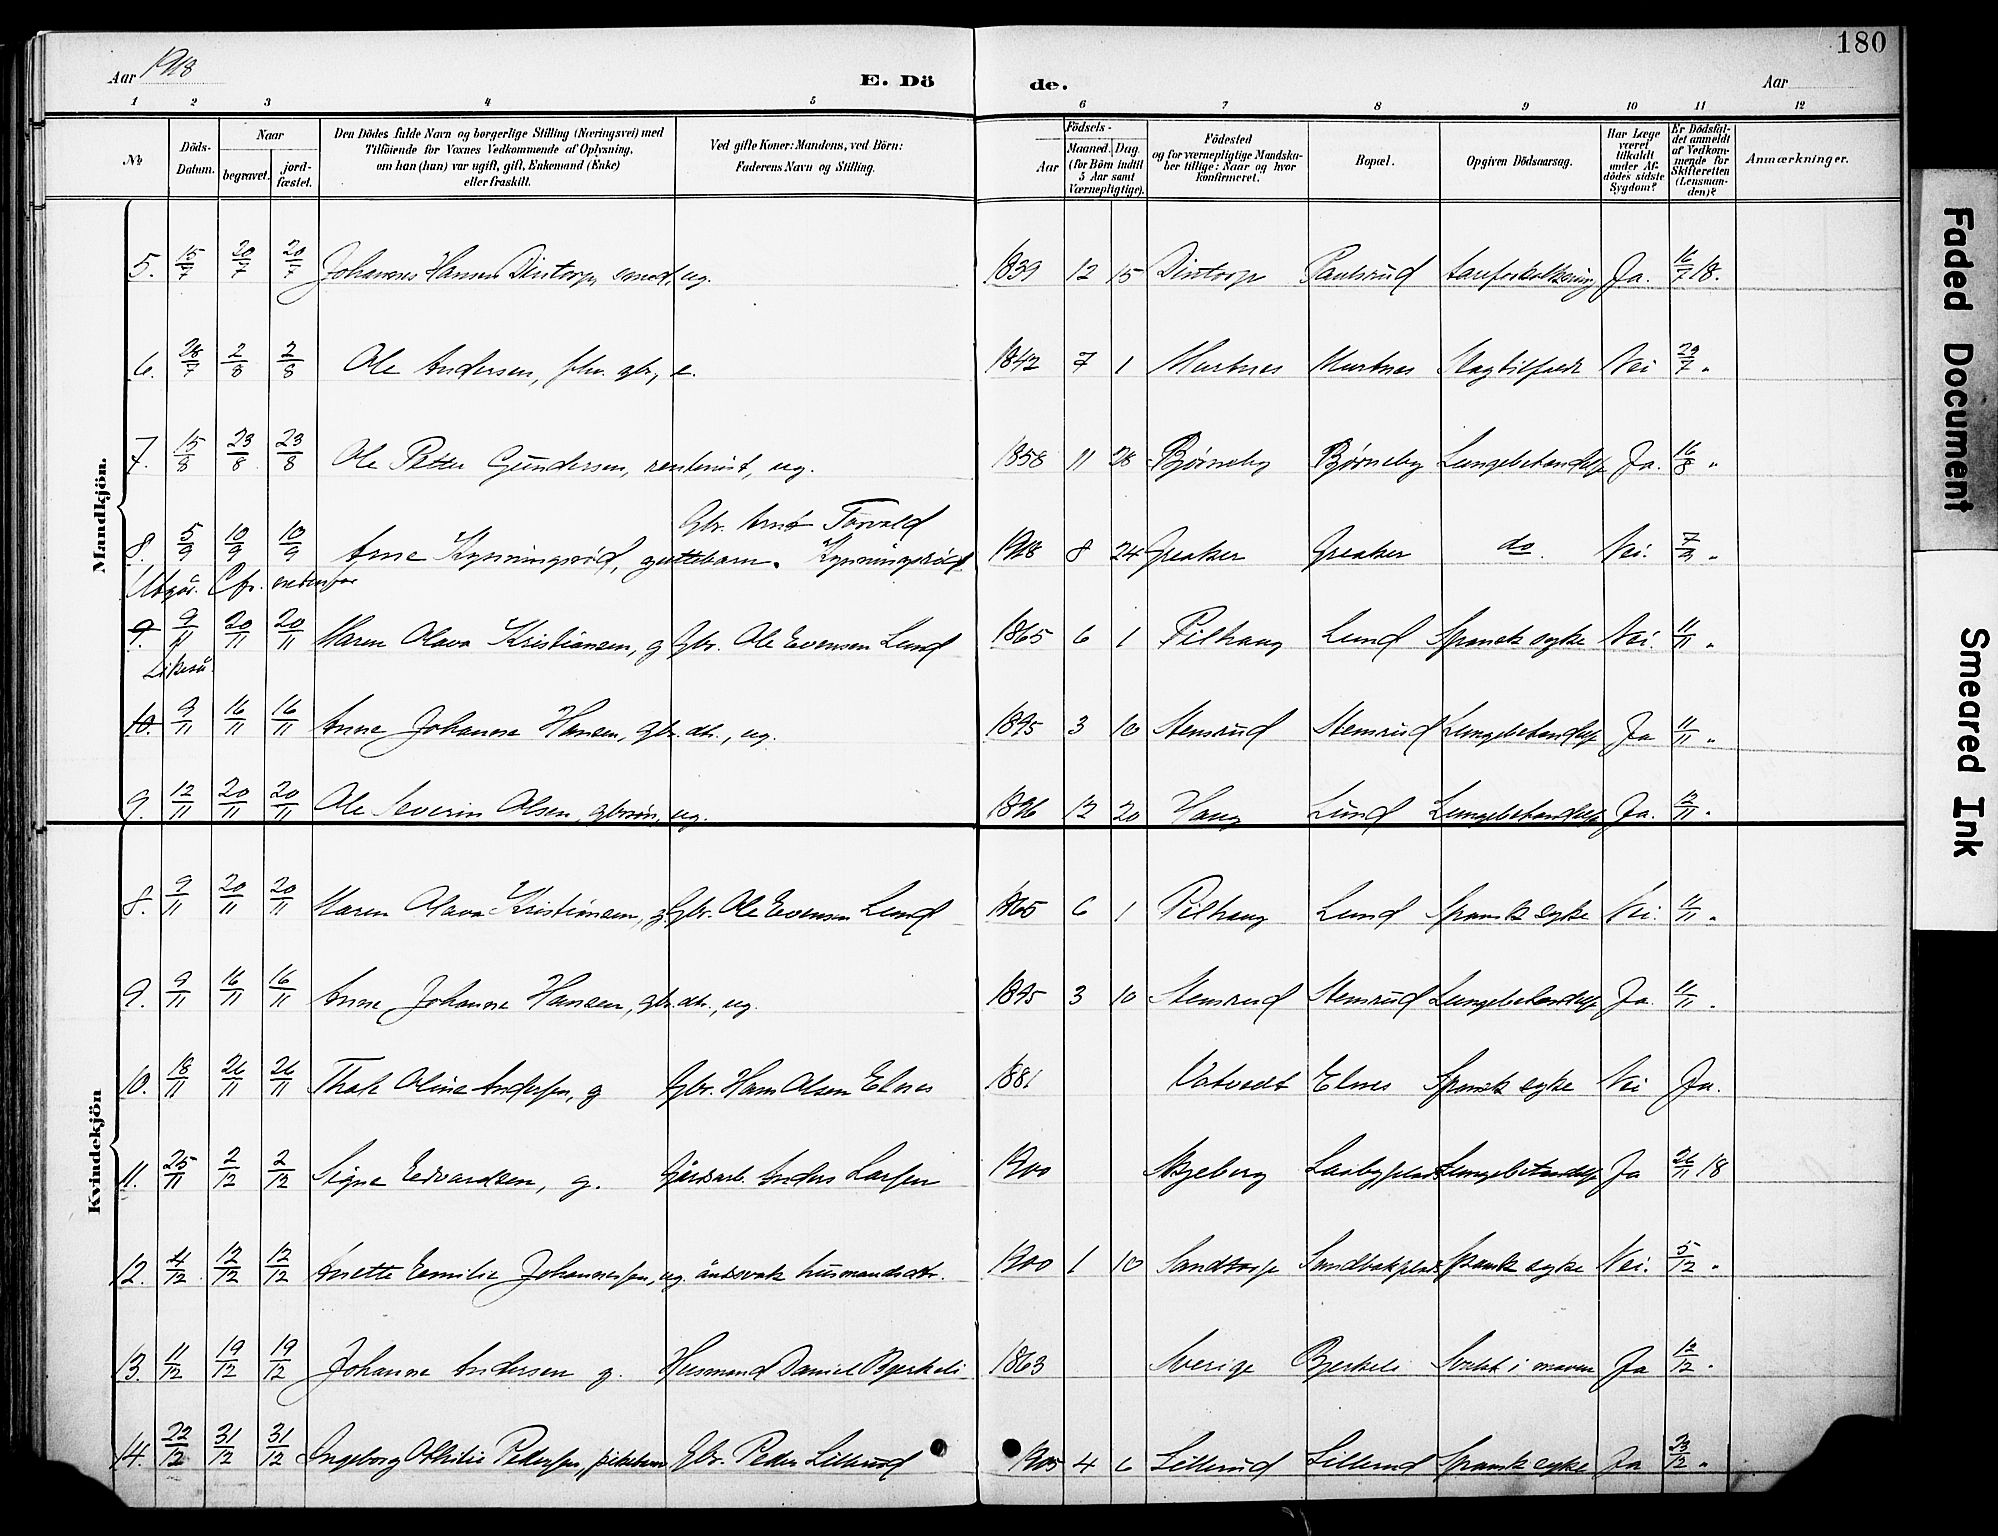 180
Aar 1918
E. Dö
de.
Aar
1 2 3 4 5 6 7 8 9 10 11 12
№
Döds-Datum.
Naar
begravet.
jord-fæstet.
Den Dödes fulde Navn og borgerlige Stilling (Næringsvei) med
Tilföiende for Voxnes Vedkommende af Oplysning,
om han (hun) var ugift, gift, Enkemand (Enke)
eller fraskilt.
Ved gifte Koner: Mandens, ved Börn:
Faderens Navn og Stilling.
Födsels-
Aar
Maaned. Dag.
(for Börn indtil
5 Aar samt
Værnepligtige).
Födested
og for værnepligtige Mandska-
ber tillige: Naar og hvor
konfirmeret.
Bopæl.
Opgiven Dödsaarsag.
Har Læge
været
tilkaldt
under Af-
dödes sidste
Sygdom?
Er Dödsfal-
det anmeldt
af Vedkom-
mende for
Skifteretten
(Lensman-
den)?
Anmærkninger.
Mandkjön.
5. 15/7 20/7 20/7 Johannes Hansen Dintorp, ug. 1839 12 15 Dintorp Paulsrud Ja. 16/7 18.
6. 28/7 2/8 2/8 Ole Andersen, fhv. gbr, e. 1842 7 1 Murtnes Murtnes Slagtilfælde Nei 29/7 "
7. 15/8 23/8 23/8 Ole Petter Gundersen, rentenist, ug. 1858 11 28 Bjørneby Bjørneby Lungebetændelse Ja. 16/8 "
Gbr. Arnt Torvald
8. 5/9 10/9 10/9 Arne Kynningsrød, guttebarn. Kynningsrød 1918 8 24 Greaker Greaker do. Nei. 7/9 "
Utgår. Cfr. nedenfor
9. 9/11 20/11 20/11 Maren Olava Kristiansen, g Gbr. Ole Evensen Lund 1865 6 1 Pilhaug Lund Spansk syke Nei. 11/11 "
Likeså.
10. 9/11 16/11 16/11 Anne Johanne Hansen, gbr. dtr., ug. 1895 3 10 Stensrud Stensrud Lungebetændelse Ja 11/11 "
9. 12/11 20/11 20/11 Ole Severin Olsen, gbrsøn, ug. 1896 12 20 Haug Lund Lungebetændelse Ja. 12/11 "
Kvindekjön
8. 9/11 20/11 20/11 Maren Olava Kristiansen, g. Gbr. Ole Evensen Lund 1865 6 1 Pilhaug Lund Spansk syke Nei. 11/11 "
9. 9/11 16/11 16/11 Anne Johanne Hansen, gbr. dtr., ug. 1895 3 10 Stensrud Stensrud Lungebetændelse Ja. 11/11 "
10. 18/11 26/11 26/11 Thak Oline Andersen, g Gbr. Hans Olsen Elnes 1881 Vatvedt Elnes Spansk syke Nei Ja.
11. 25/11 2/12 2/12 Signe Edvardsen, g. Anders Larsen 1900 Skjeberg Lungebetændelse Ja 26/11 18
12. 4/12 12/12 12/12 Anette Emilie Johannessen, ug. åndsvak husmandsdtr. 1900 1 10 Sandtorp Spansk syke Nei. 5/12 "
13. 11/12 19/12 19/12 Johanne Andersen g. Husmand Daniel Bjerkeli 1863 Sverige Bjerkeli i maven Ja 12/12 "
14. 22/12 31/12 31/12 Ingeborg Othilie Pedersen, pikebarn Gbr. Peder Lillerud 1905 4 6 Lillerud Lillerud Spansk syke Ja 23/12 "
Faded Document
Smeared Ink